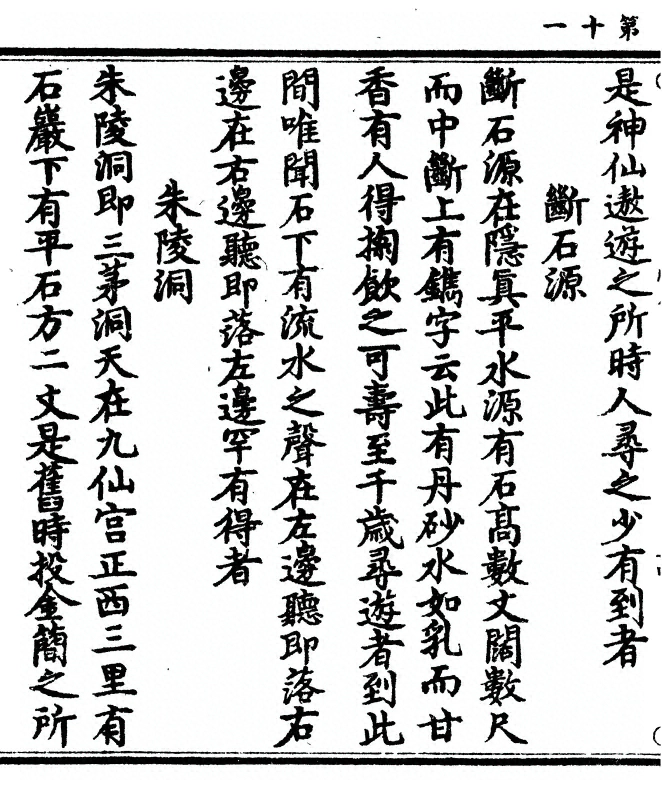 第十一
是神仙遨遊之所時人尋之少有到者
斷石源
斷石源在隱眞平水源有石高數丈闊數尺
而中斷上有鐫字云此有丹砂水如乳而甘
香有人得掬飲之可壽至千歲尋遊者到此
間唯聞石下有流水之聲在左邊聽即落右
邊在右邊聽即落左邊罕有得者
朱陵洞
朱陵洞即三茅洞天在九仙宫正西三里有
石巖下有平石方二丈是舊時投金簡之所